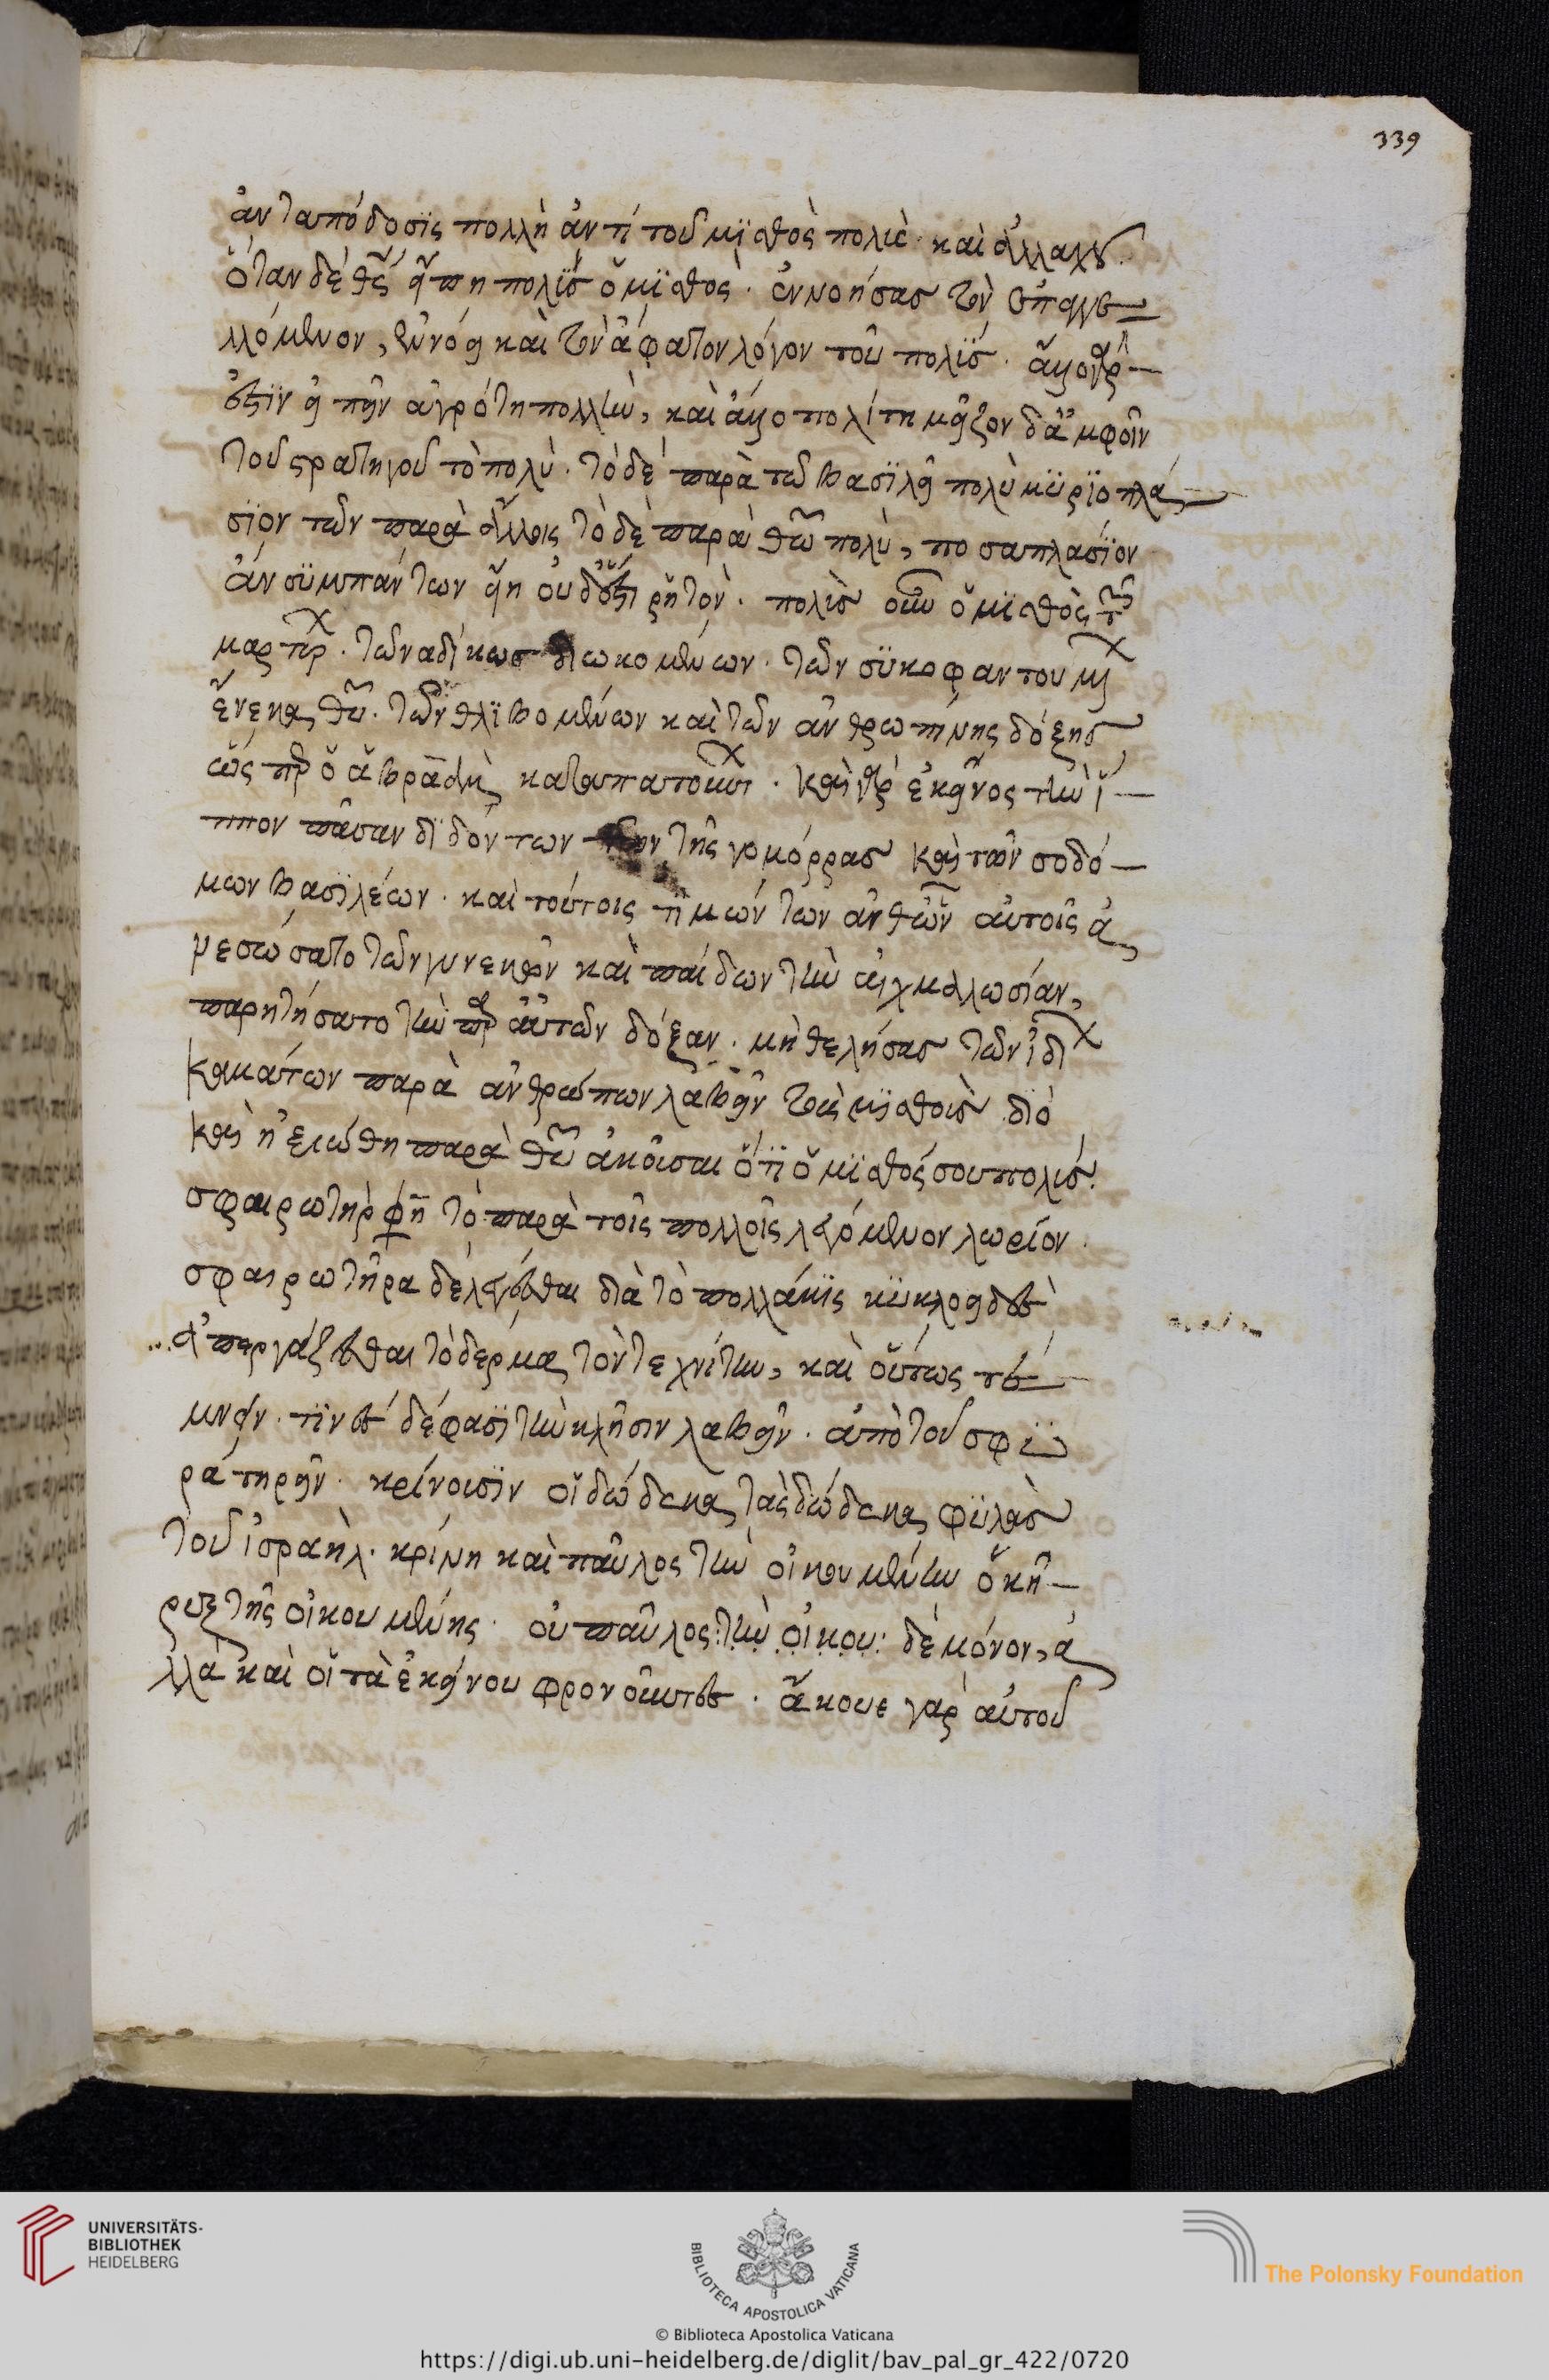 339
ἀνταπόδοσϊς πολλὴ ἀντί τοῦ μϊσθὸς πολὺς· καὶ ἀλλαχοῦ.
ὅταν δὲ θς εἴπη πολὺς ὁ μϊσθὸς. ἐννοήσας τὸν ἐπαγγε
λλόμενον, ἐννόει καὶ τὸν ἄφατον λόγον τοῦ πολὺς.
πολλῶ, καὶ πολίτη μεῖζον δ' ἀμφοῖν
τοῦ στρατηγοῦ τὸ πολύ. τὸ δὲ παρὰ τῶ βασϊλεῖ πολὺ μϋρϊοπλά
σϊον τῶν παρὰ ἄλλοις τὸ δὲ παρὰ θῶ πολὺ, ποσαπλασΐον
ἀν σϋμπάντων εἴη οὐδ' ἔστι ῥητὸν. πολὺς οὖν ὁ μϊσθὸς τῶν
μαρτύρων. τῶν ἀδίκως διωκομένων. τῶν σϋκοφαντουμένων
ἕνεκα θῦ. τῶν θλϊβομένων καὶ τῶν ἀνθρωπίνης δόξης
ὡς πὴρ ὁ ἀβραὰμ καταπατούντων. καὶ γὰρ ἐκεῖνος τὴν ἵ
ππον πᾶσαν δϊδόντων τῶν τῆς γομόρρας καὶ τῶν σοδό
μων βασϊλέων. καὶ τούτοις τϊμώντων ἀνθῶν αὐτοῖς ἀ
νεσώσατο τῶν γυνεκῶν καὶ παίδων τὴν αἰχμαλωσίαν,
παρητήσατο τὴν παρ' αὐτῶν δόξαν. μὴ θελήσας τῶν ἰδίων
καμάτων παρὰ ἀνθρώπων λαβεῖν τοὺς μϊσθοὺς διὸ
καὶ ἠξιώθη παρὰ θῦ ἀκοῦσαι ὅτϊ ὁ μϊσθός σου πολὺς.
σφαιρωτὴρ φη τὸ παρὰ τοῖς πολλοῖς λεγόμενον λωρίον.
σφαιρωτῆρα δὲ λέγεσθαι διὰ τὸ πολλάκϊς κϋκλοειδὲς
ἀπεργάζεσθαι τὸ δέρμα τὸν τεχνίτην, καὶ οὕτως τέ
μνειν. τϊνὲς δέ φασϊ τὴν κλῆσιν λαβεῖν. ἀπὸ τοῦ σφϋ
ρά τηρεῖν. κρίνουσϊν οἱ δώδεκα τὰς δώδεκα φϋλὰς
τοῦ ἰσραὴλ. κρίνη καὶ παῦλος τὴν οἰκουμένην ὁ κῆ
ρυξ τῆς οἰκουμένης. οὐ παῦλος τὴν οἰκου δὲ μόνον, ἀ
λλὰ καὶ οἱ τὰ ἐκείνου φρονοῦντες. ἄκουε γὰρ αὐτοῦ
UNIVERSITÄTS-
BIBLIOTHEK
HEIDELBERG
BIBLIOTECA APOSTOLICA VATICANA
The Polonsky Foundation
© Biblioteca Apostolica Vaticana
https://digi.ub.uni-heidelberg.de/diglit/bav_pal_gr_422/0720